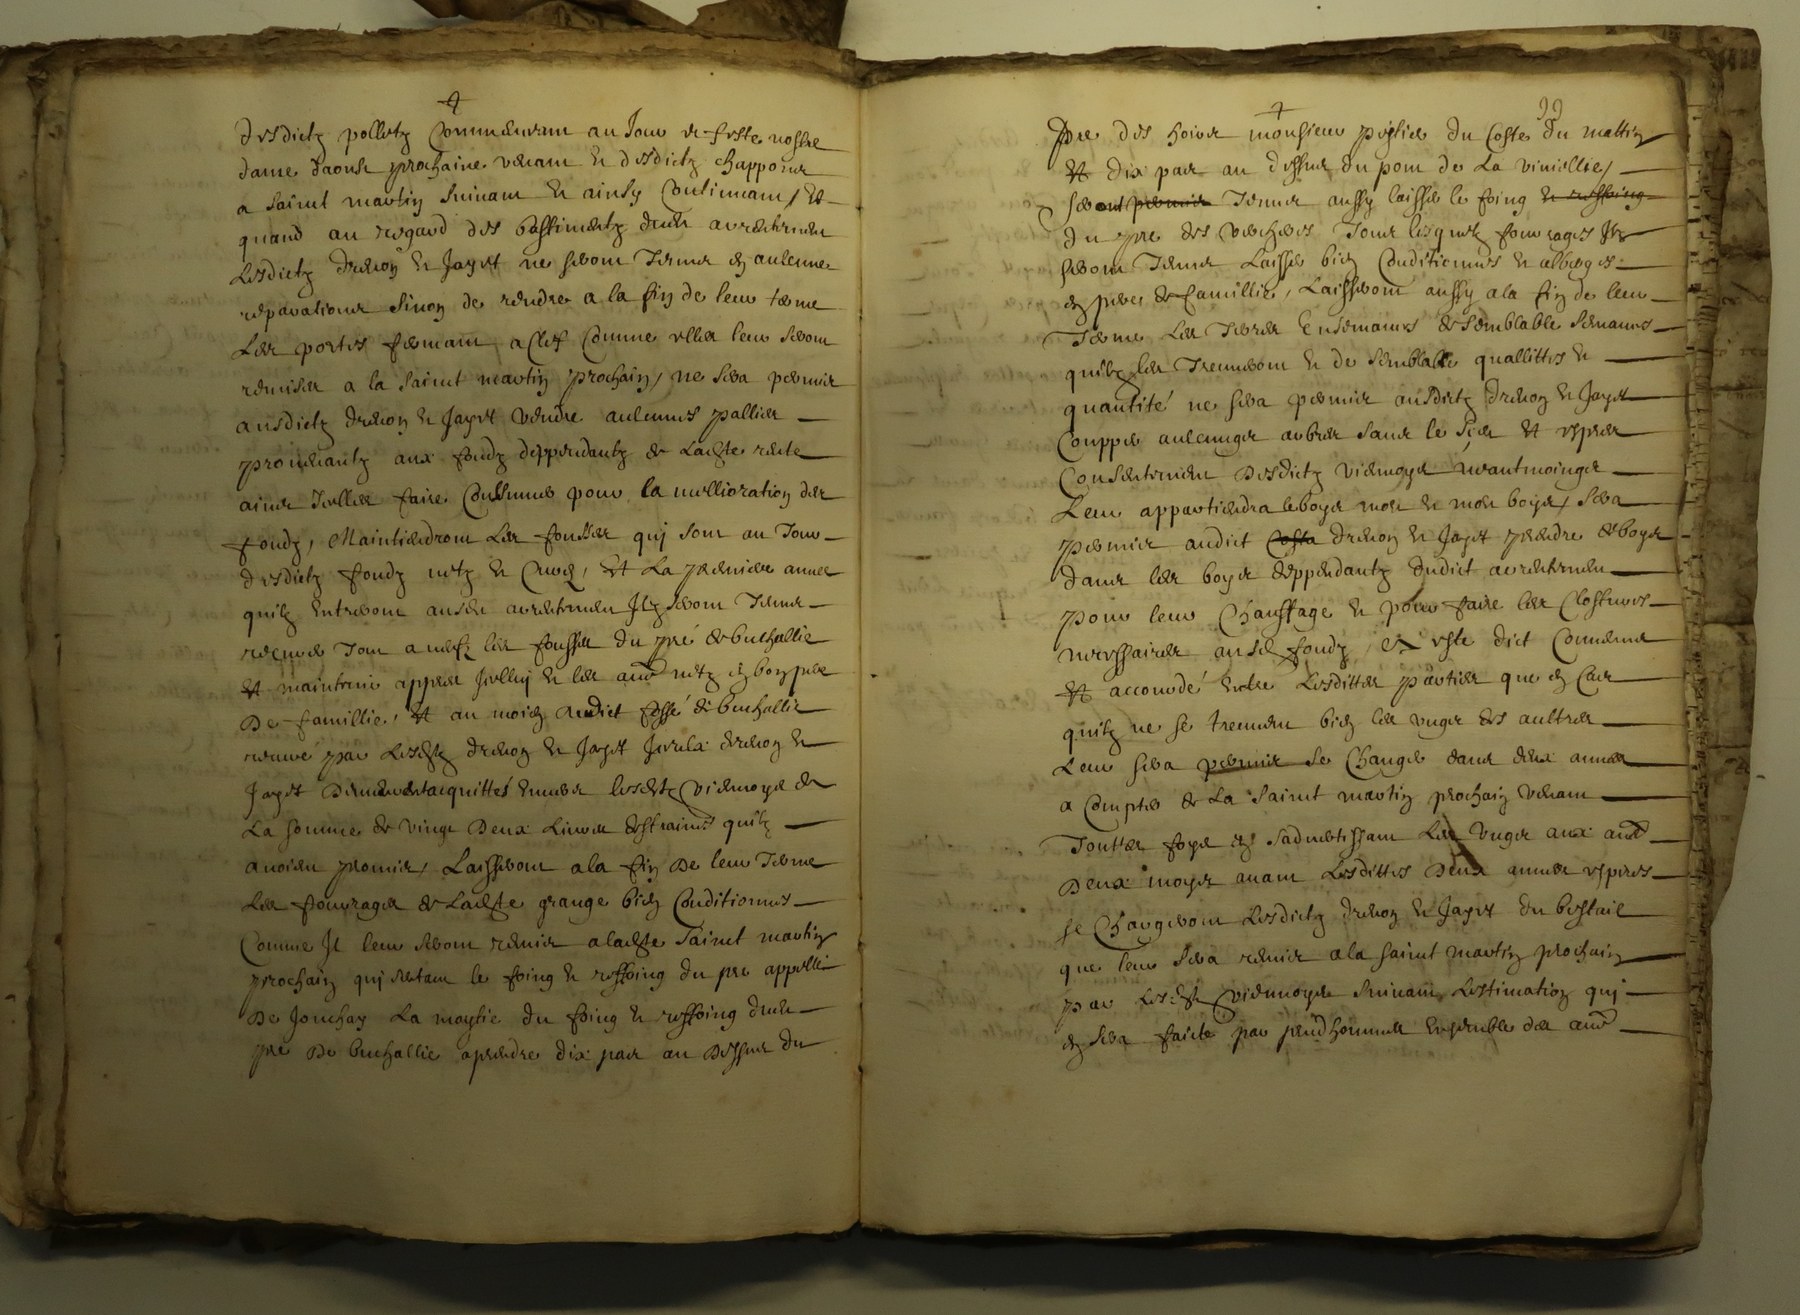 desdictz polletz Commencant au Jour et feste nostre
dame daoust prochaine venant et desdictz chappons
a Sainct martin Suivant et ainsy Continuant / Et
quand au regard des bastimentz dudit
Lesdictz drevon et Jayet ne seront Tenus en aulcunes
reparations Sinon de rendre a la fin de leur terme
Les portes fermant a Clef Comme elles leur seront
remises a la Sainct martin prochain / ne sera permis
ausdictz drevon et Jayet vendre aulcunes pallies
provenantz aux fondz deppendantz de Ladicte
ains Icelles faire Consumer pour la mellioration des
fondz, Maintiendront Les fousses qui sont au Tour
desdictz fondz netz et Curez, Et La premiere annee
quilz entreront audit Ilz seront Tenus
Tout a neufz les fousses du pré de buchallie
Et maintenir appres Icelluy et les aultres netz en bon pere
De famillie, Et au moien dudict fossé de buchallie
par Lesdictz drevon et Jayet Iceulx drevon et
Jayet acquittés envers lesdictz viennoys de
La somme de vingt Deux Livres quilz
avoient promis, Laisseront a la fin De leur Terme
Les fourrages de Ladicte grange bien Conditionnes
Comme Il leur seront remis a ladicte Sainct martin
prochain qui le foing et reffoing du pre appelle
De Jonchay La moytie du foing et reffoing dudit
pre De buchallie a prendre dix pas au Dessus du
99
Pre des hoirs monsieur du Coste du mattin
Et dix pas au dessus du pont de La viniellie /
seront permis Tenus aussy laisser le foing et reffoing
du pre des vercheres Tous lesquelz fourrages Ilz
seront Tenus Laisser bien Conditionnes et
en peres de famillie, Laisseront aussy a la fin de leur
Terme Les Terres Ensemances de Semblable Semances
quilz les Treuveront et de Semblable quallittes et
quantité ne sera permis ausdictz drevon et Jayet
Coupper aulcungs arbres Sans le Sceu Et expres
Consentement Desdictz viennoys neantmoings
Leur appartiendra le boys mort et mort boys, sera
permis audict Costa drevon et Jayet prendre de boys
dans les boys deppendantz dudict
pour leur Chauffage et pour faire les Clostures
necessaires ausd fondz, Et este dict Convenu
Et accordé entre Lesdittes parties que en Cas
quilz ne se treuvent bien les ungs des aultres
Leur sera permis se Changer dans deux annees
a Compter de La Sainct martin prochain venant
Touttes foys en Sadvertissant Les Ungs aux aultres
Deux moys avant Lesdittes Deux annees expires
se Chargeront Lesdictz drevon et Jayet du bestail
que leur Sera remis a la Sainct martin prochain
par Lesdictz viennoys Suivant Lestimation qui
en sera faicte par preudhommes ensemble des aultres